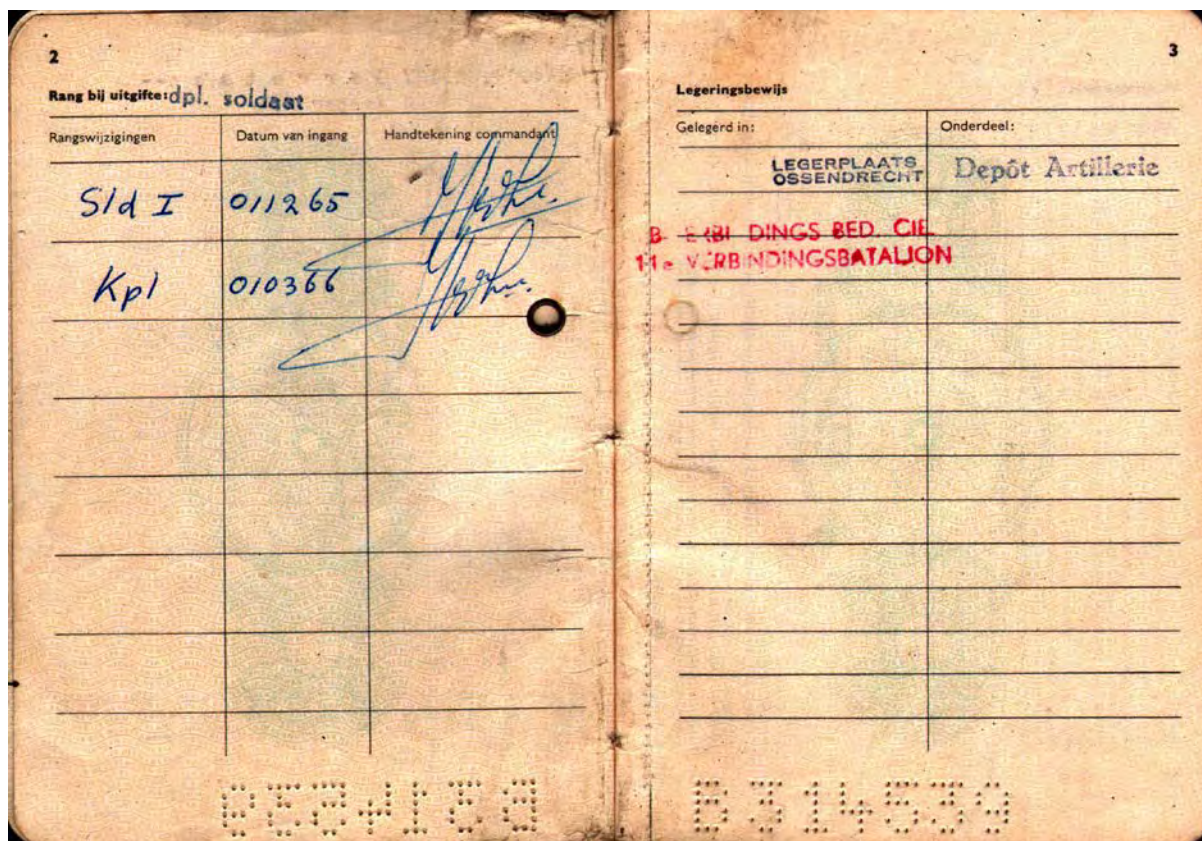 2
Rang bij uitgifte: dpl. soldaat
Rangswijzigingen Datum van ingang Handtekening commandant
Sld I 011265
Kpl 010366
3
Legeringsbewijs
Gelegerd in: Onderdeel:
LEGERPLAATS OSSENDRECHT Depôt Artillerie
BED. CIE.
11e VERBINDINGSBATALJON
B 314539